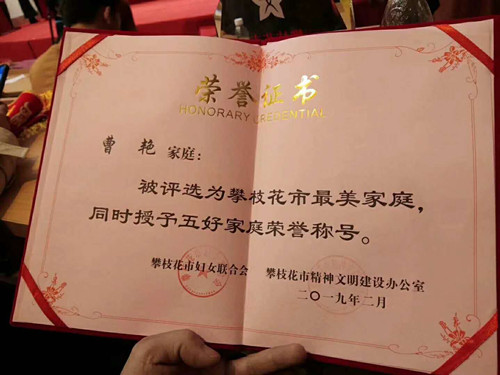 荣誉证书
HONORARY CREDENTIAL
曹艳 家庭：
被评选为攀枝花市最美家庭，
同时授予五好家庭荣誉称号。
攀枝花市妇女联合会 攀枝花市精神文明建设办公室
二〇一九年二月